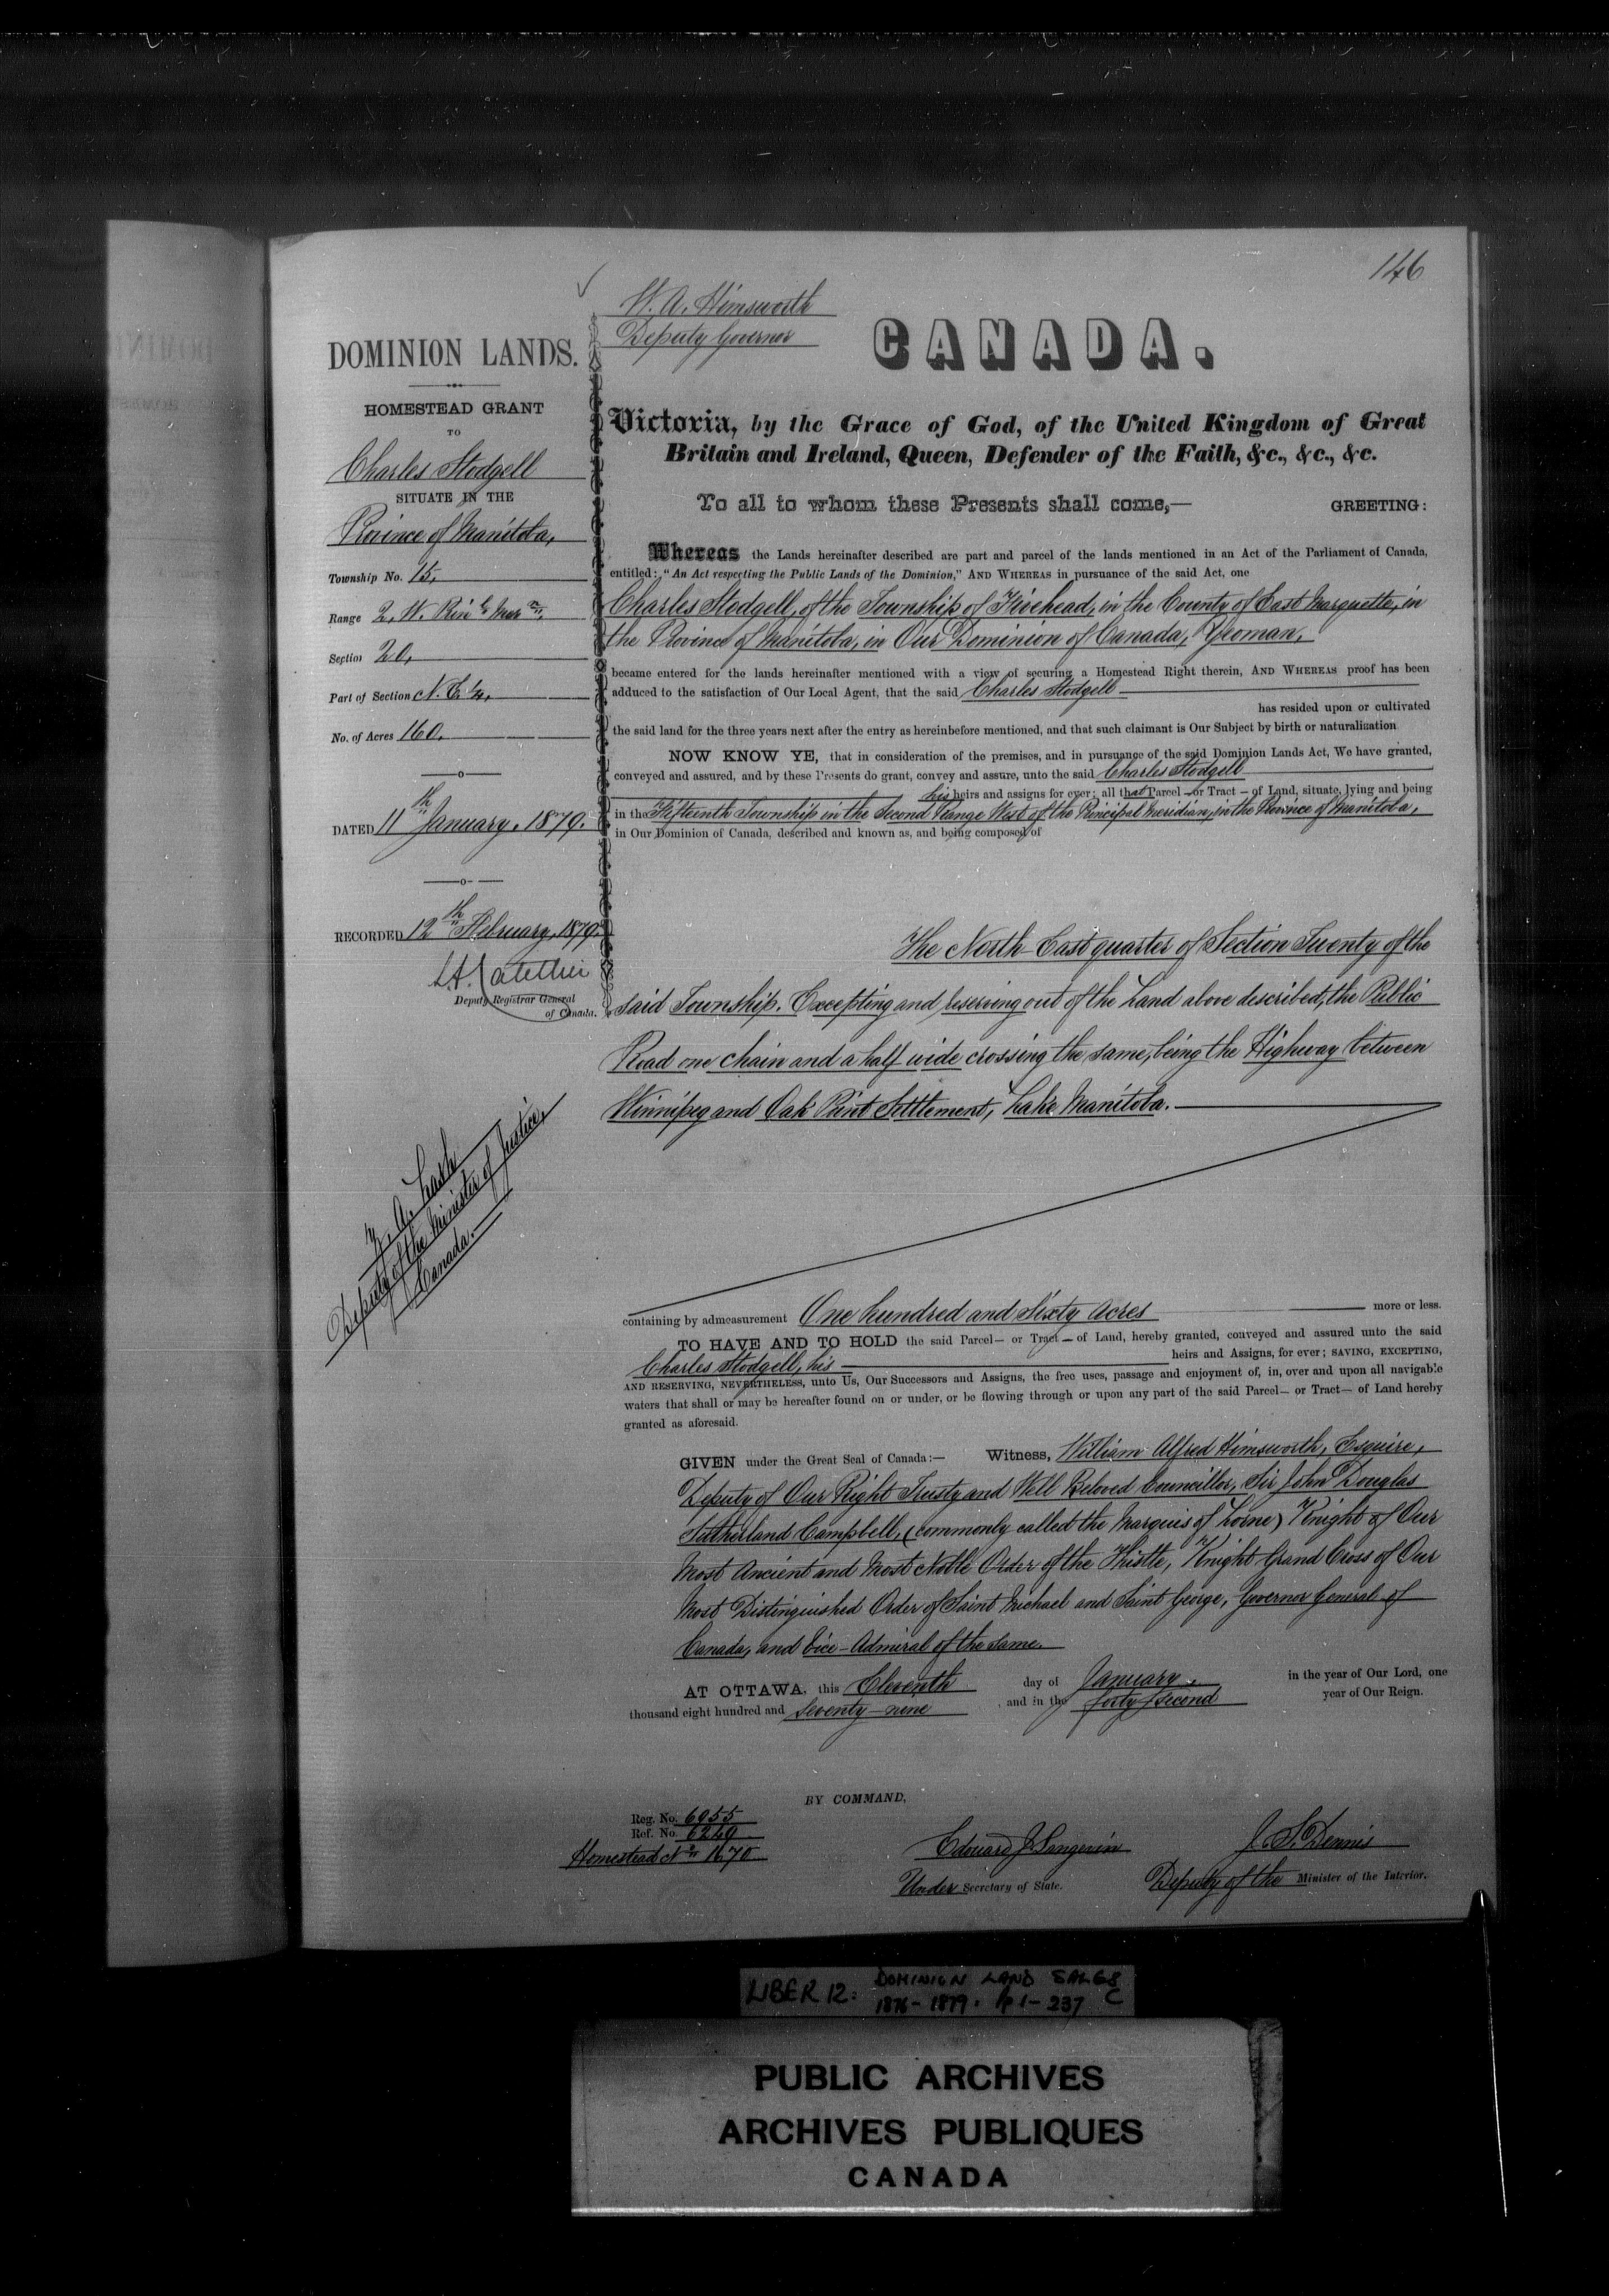 146
W. A. Himsworth
Deputy Governor
CANADA.
DOMINION LANDS.
HOMESTEAD GRANT
TO
Charles Stodgell
SITUATE IN THE
Province of Manitoba,
Township No. 15,
Range 2, W. Prin.l Mer.n,
Section 20,
Part of Section N. E. 1/4,
No. of Acres 160,
DATED 11th January, 1879.
RECORDED 12th February, 1879.
Deputy Registrar General
of Canada.
Z. A. Lash
Deputy of the Minister of Justice,
Canada.
Victoria, by the Grace of God, of the United Kingdom of Great
Britain and Ireland, Queen, Defender of the Faith, &c., &c., &c.
To all to whom these Presents shall come,— GREETING:
Whereas the Lands hereinafter described are part and parcel of the lands mentioned in an Act of the Parliament of Canada,
entitled: "An Act respecting the Public Lands of the Dominion," AND WHEREAS in pursuance of the said Act, one
Charles Stodgell, of the Township of in the County of East Marquette, in
the Province of Manitoba, in Our Dominion of Canada, Yeoman,
became entered for the lands hereinafter mentioned with a view of securing a Homestead Right therein, AND WHEREAS proof has been
adduced to the satisfaction of Our Local Agent, that the said Charles Stodgell
has resided upon or cultivated
the said land for the three years next after the entry as hereinbefore mentioned, and that such claimant is Our Subject by birth or naturalization
NOW KNOW YE, that in consideration of the premises, and in pursuance of the said Dominion Lands Act, We have granted,
conveyed and assured, and by these Presents do grant, convey and assure, unto the said Charles Stodgell
his heirs and assigns for ever; all that Parcel — or Tract — of Land, situate, lying and being
in the Fifteenth Township in the Second Range West of the Principal Meridian, in the Province of Manitoba,
in Our Dominion of Canada, described and known as, and being composed of
The North East quarter of Section Twenty of the
said Township. Excepting and reserving out of the Land above described, the Public
Road one chain and a half wide crossing the same, being the Highway between
Winnipeg and Oak Point Settlement, Lake Manitoba.
containing by admeasurement One hundred and Sixty Acres more or less.
TO HAVE AND TO HOLD the said Parcel— or Tract — of Land, hereby granted, conveyed and assured unto the said
Charles Stodgell, his heirs and Assigns, for ever; SAVING, EXCEPTING,
AND RESERVING, NEVERTHELESS, unto Us, Our Successors and Assigns, the free uses, passage and enjoyment of, in, over and upon all navigable
waters that shall or may be hereafter found on or under, or be flowing through or upon any part of the said Parcel— or Tract— of Land hereby
granted as aforesaid.
GIVEN under the Great Seal of Canada:— Witness, William Alfred Himsworth, Esquire,
Deputy of Our Right Trusty and Well Beloved Councillor, Sir John Douglas
Sutherland Campbell, (commonly called the Marquis of Lorne) Knight of Our
Most Ancient and Most Noble Order of the Thistle, Knight Grand Cross of Our
Most Distinguished Order of Saint Michael and Saint George, Governor General of
Canada, and Vice-Admiral of the same.
AT OTTAWA, this Eleventh day of January, in the year of Our Lord, one
thousand eight hundred and Seventy-nine, and in the forty second year of Our Reign.
BY COMMAND,
Reg. No. 6955
Ref. No. 6249
Homestead No. 1670
Edouard J Langevin
Under Secretary of State.
J. S. Dennis
Deputy of the Minister of the Interior.
LIBER 12: DOMINION LAND SALES
1876-1879. p 1-237 C
PUBLIC ARCHIVES
ARCHIVES PUBLIQUES
CANADA